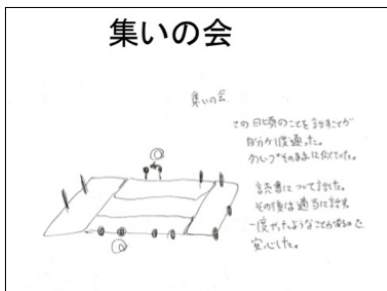 集いの会
集いの会
この日頃のことを話すことが
自分が1度通った。
グループそのままに似ていた。
読書について話した。
その後は適当に話す
一度やったようなことがあるので
安心した。